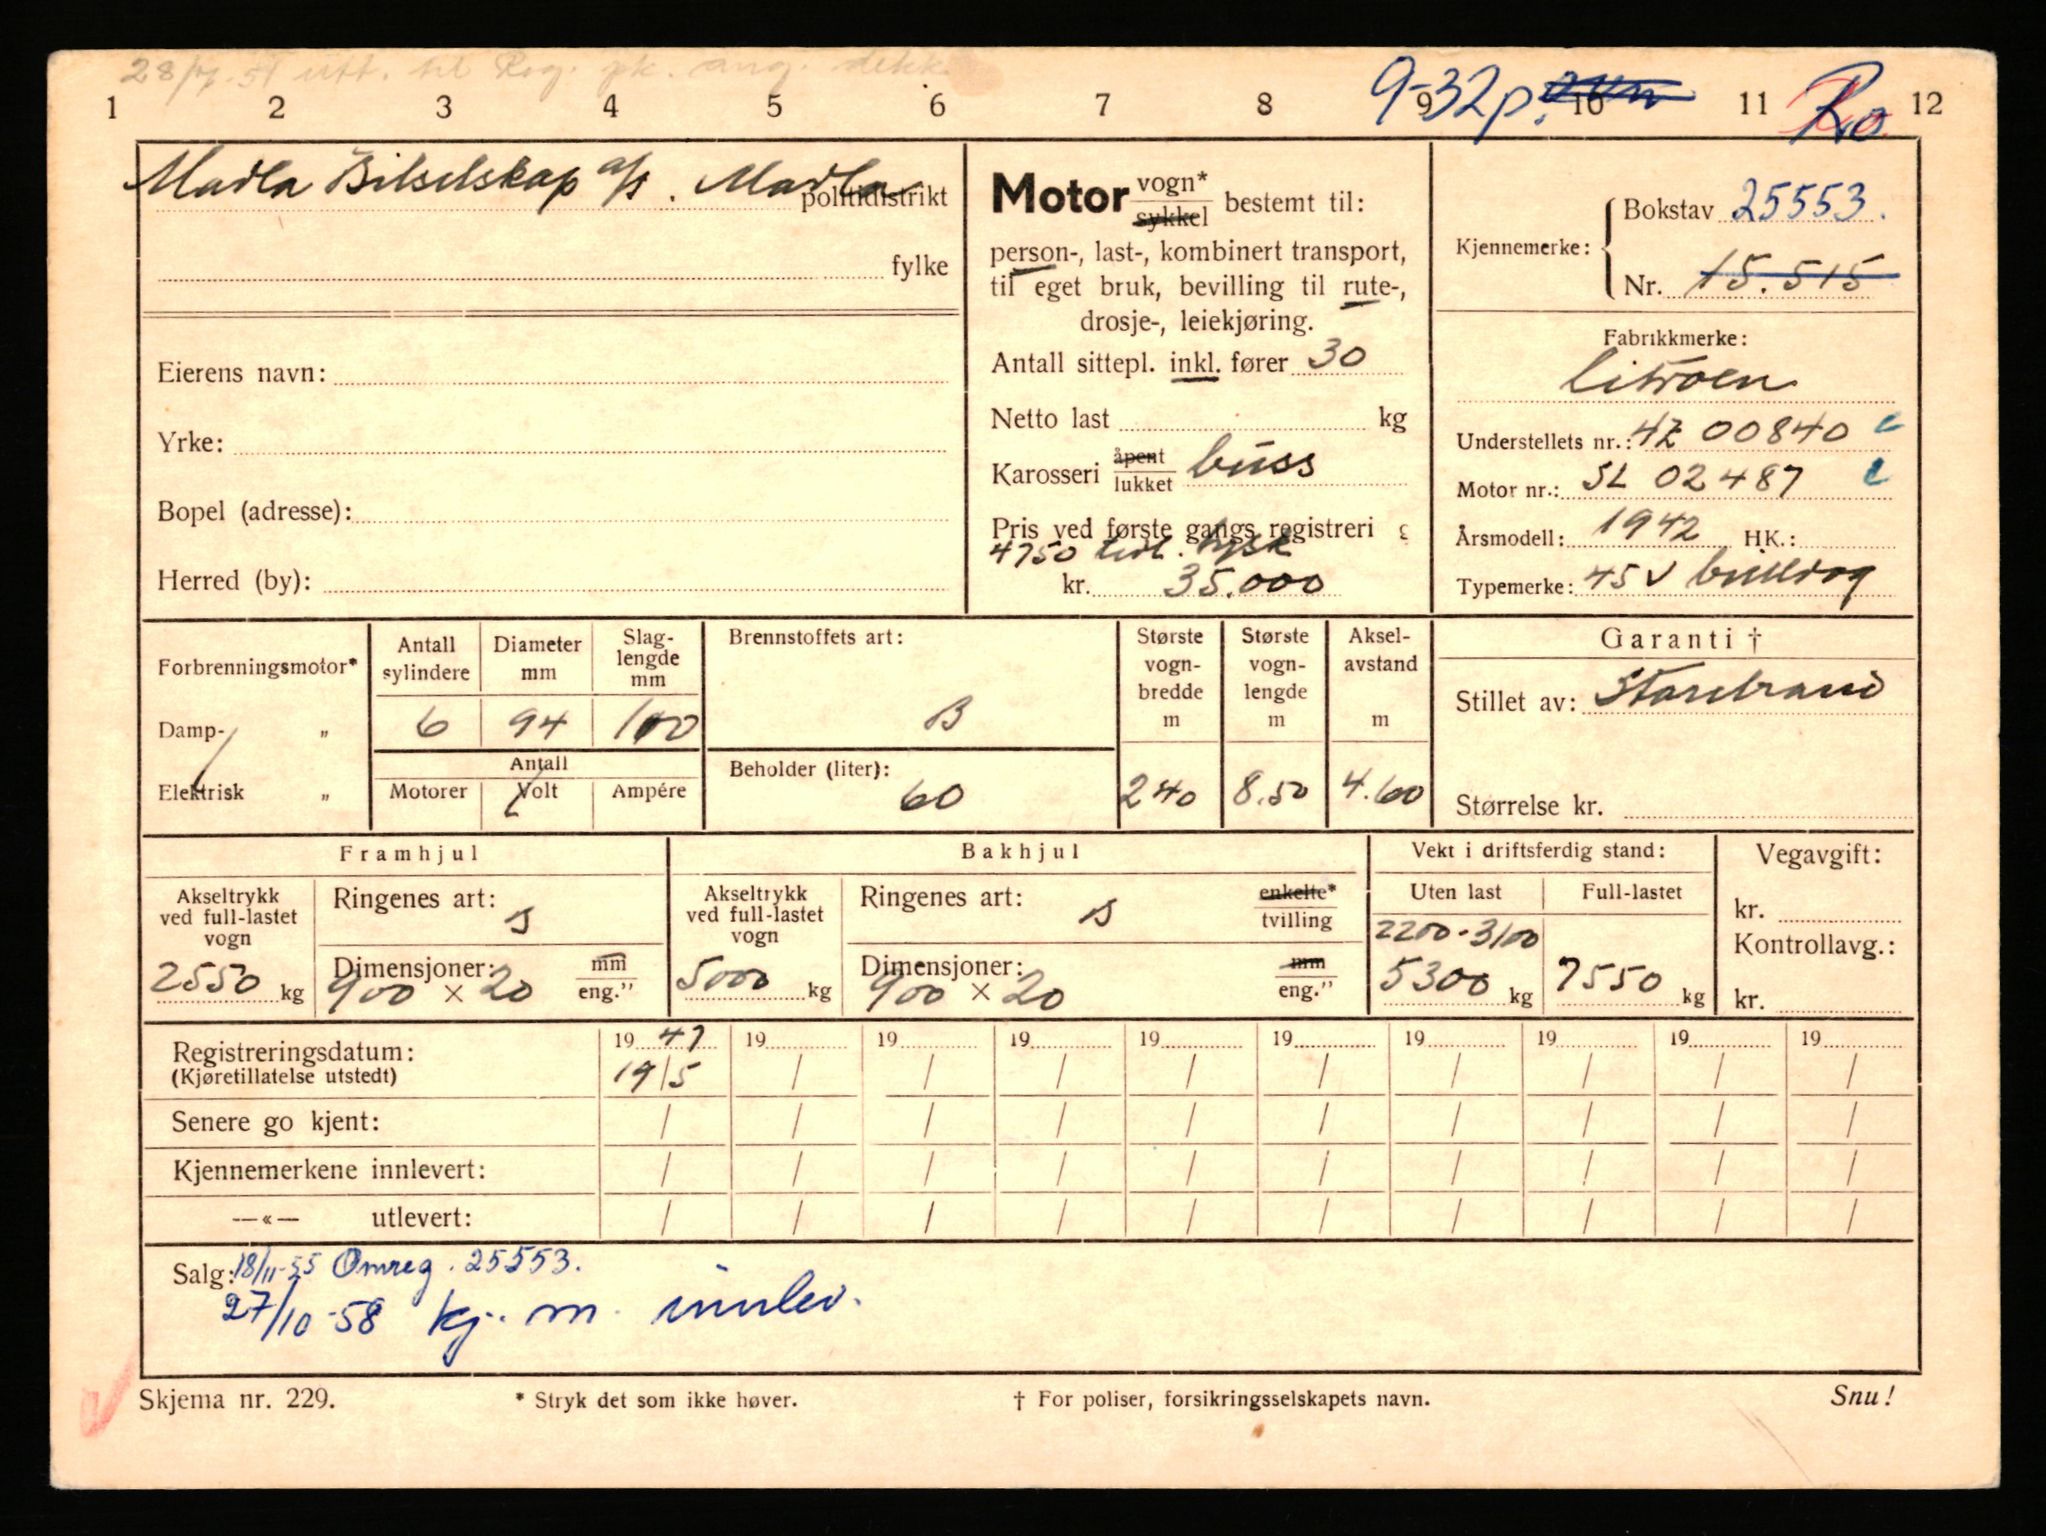 28/9.51 utt. til Reg. pk. ang. dekk.
1 2 3 4 5 6 7 8 9 10 11 12
9-32 p.
Ro
Madla Bilselskap a/s. Madla politidistrikt
fylke
Eierens navn:
Yrke:
Bopel (adresse):
Herred (by):
Motor vogn* sykkel bestemt til:
person-, last-, kombinert transport,
til eget bruk, bevilling til rute-,
drosje-, leiekjøring.
Antall sittepl. inkl. fører 30
Netto last kg
Karosseri åpent lukket buss
Pris ved første gangs registreri g
4750 tidl. tysk
kr. 35.000
Kjennemerke: Bokstav 25553.
Nr. 15.515
Fabrikkmerke:
Citroen
Understellets nr.: 4Z 00840 c
Motor nr.: SL 02487 c
Årsmodell: 1942 HK.:
Typemerke: 45 V bulldog
Forbrenningsmotor*
Damp- „
Elektrisk „
Antall sylindere 6
Diameter mm 94
Slag-lengde mm 100
Antall
Motorer Volt Ampére
Brennstoffets art:
B
Beholder (liter):
60
Største vogn-bredde m 240
Største vogn-lengde m 8.50
Aksel-avstand m 4.60
Garanti †
Stillet av: Storebrand
Størrelse kr.
Framhjul
Akseltrykk ved full-lastet vogn
2550 kg
Ringenes art: B
Dimensjoner: mm eng."
900 × 20
Bakhjul
Akseltrykk ved full-lastet vogn
5000 kg
Ringenes art: B enkelte* tvilling
Dimensjoner: mm eng."
900 × 20
Vekt i driftsferdig stand:
Uten last Full-lastet
2200-3100
5300 kg 7550 kg
Vegavgift:
kr.
Kontrollavg.:
kr.
Registreringsdatum: 19 47 19 19 19 19 19 19 19 19 19
(Kjøretillatelse utstedt) 19/5 / / / / / / / / /
Senere go kjent: / / / / / / / / / /
Kjennemerkene innlevert: / / / / / / / / / /
—«— utlevert: / / / / / / / / / /
Salg: 18/11-55 Omreg. 25553.
27/10-58 kj. m. innlev.
Skjema nr. 229. * Stryk det som ikke høver. † For poliser, forsikringsselskapets navn. Snu!